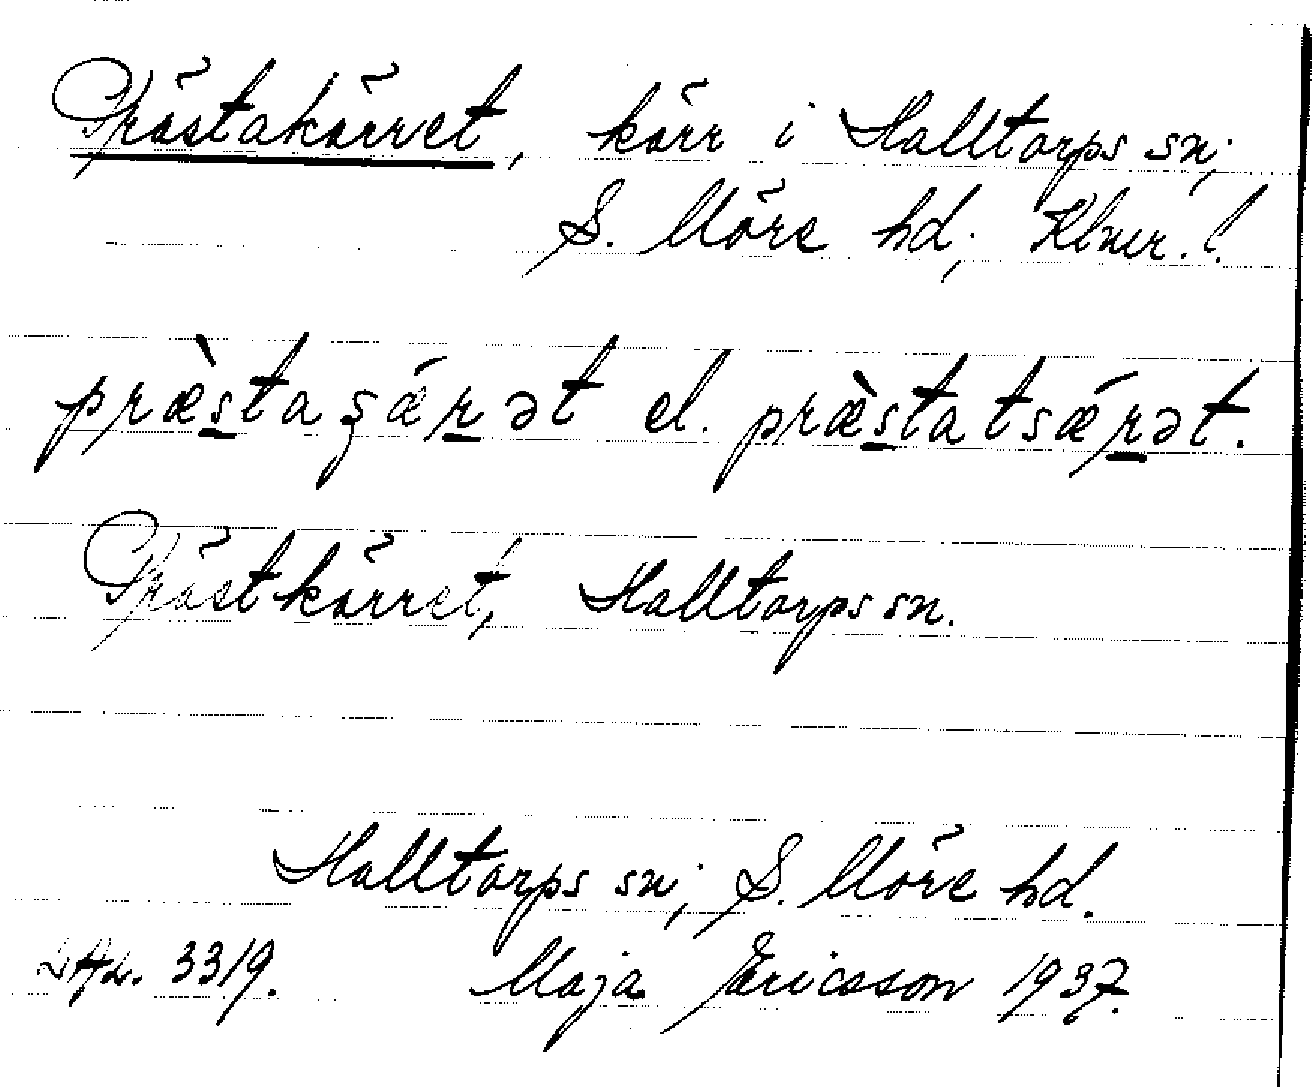 Prästakärret, kärr i Halltorps sn;
S. Möre hd; Klmr. l.
præ̀s̲taʂǽr̲ət el. præ̀s̲tatsǽr̲ət.
Prästkärret, Halltorps sn.
Halltorps sn; S. Möre hd.
3319. Maja Ericsson 1937.